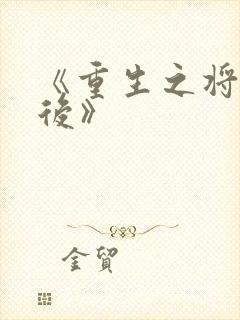 《重生之将
後》
金贸